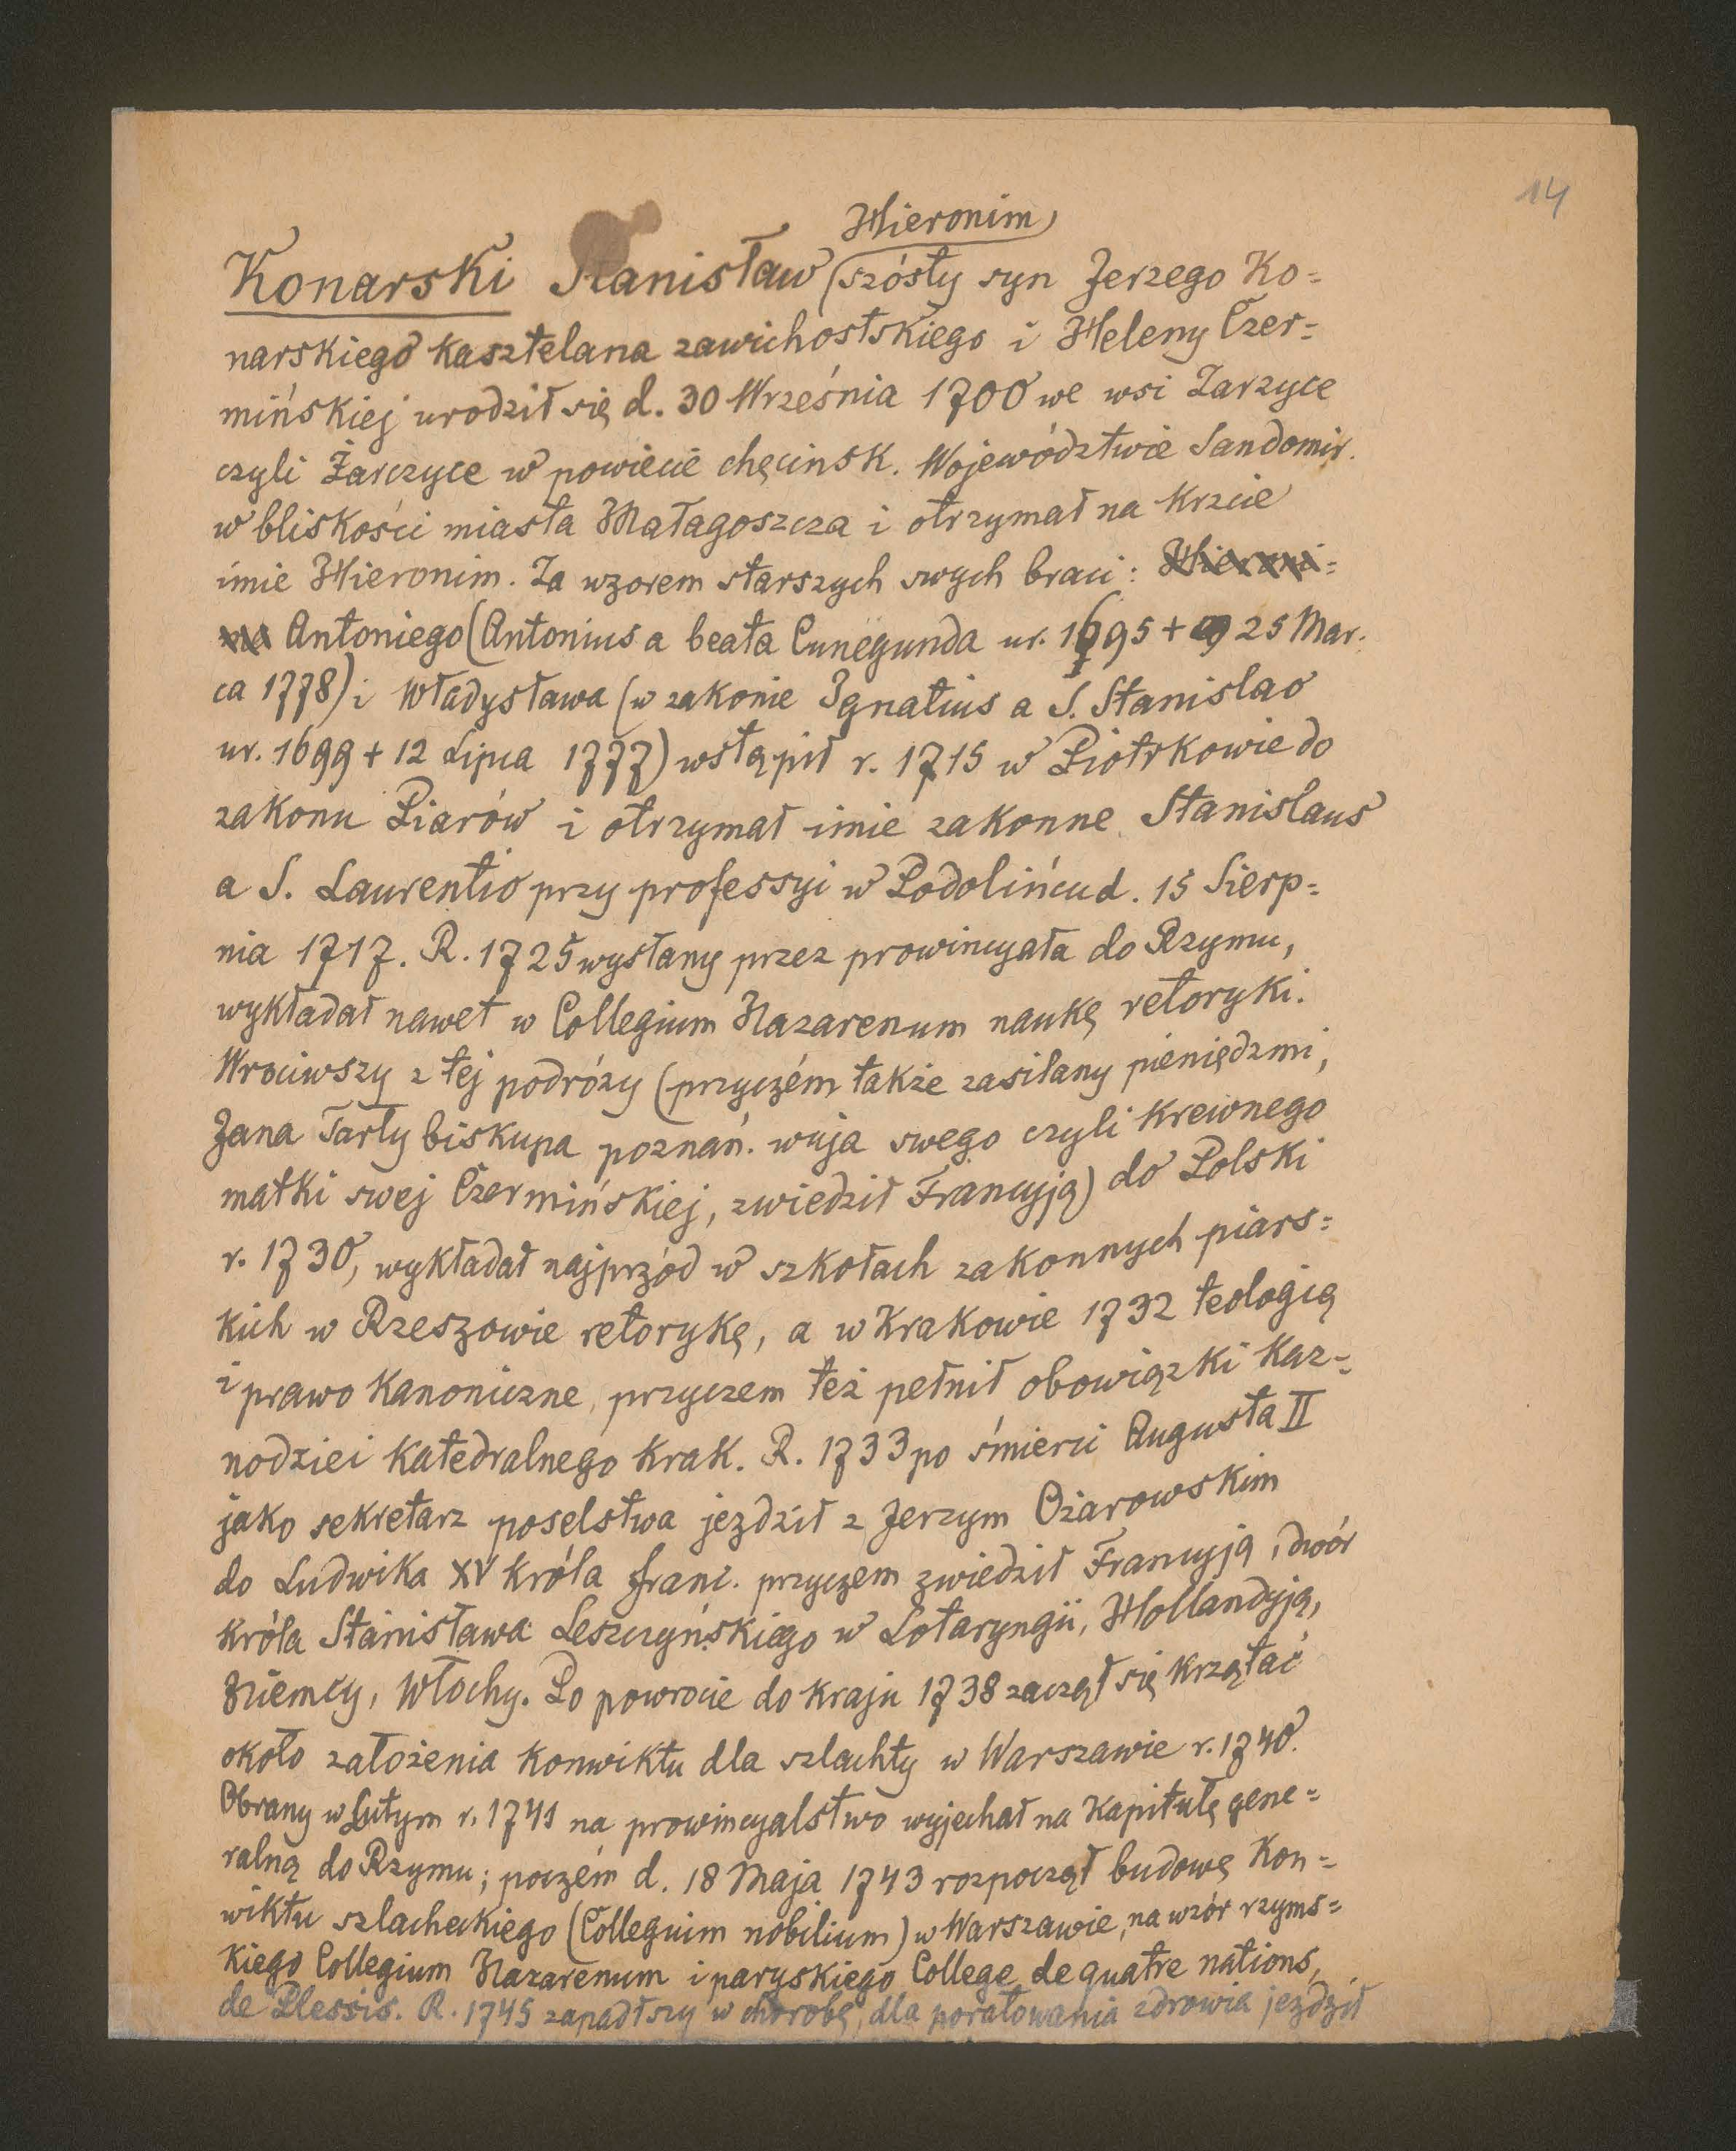 14
Hieronim
Konarski Stanisław (szósty syn Jerzego Ko=
narskiego kasztelana zawichostskiego i Heleny Czer=
mińskiej urodził się d. 30 Września 1700 we wsi Zarzyce
czyli Żarczyce w powiecie chęcinsk. Województwie Sandomir.
w bliskości miasta Małagoszcza i otrzymał na krzcie
imie Hieronim. Za wzorem starszych swych braci: Hieroni=
ma Antoniego (Antonius a beata Cunegunda ur. 1695 + 25 Mar.
ca 1778) i Władysława (w zakonie Ignatius a S. Stanislao
ur. 1699 + 12 Lipca 1777) wstąpił r. 1715 w Piotrkowie do
zakonu Piarów i otrzymał imie zakonne Stanislaus
a S. Laurentio przy professyi w Podolińcu d. 15 Sierp=
nia 1717. R. 1725 wysłany przez prowincyała do Rzymu,
wykładał nawet w Collegium Nazarenum naukę retoryki.
Wrociwszy z tej podróży (przyczém także zasilany pieniędzmi,
Jana Tarły biskupa poznań. wuja swego czyli krewnego
matki swej Czermińskiej, zwiedził Francyją) do Polski
r. 1730, wykładał najprzód w szkołach zakonnych piars=
kich w Rzeszowie retorykę, a w Krakowie 1732 teologią
i prawo kanoniczne, przyczem też pełnił obowiązki kaz=
nodziei katedralnego krak. R. 1733 po śmierci Augusta II
jako sekretarz poselstwa jezdził z Jerzym Ożarowskim
do Ludwika XV króla franc. przyczem zwiedził Francyją, dwór
króla Stanisława Leszczyńskiego w Lotaryngii, Hollandyją,
Niemcy, Włochy. Po powrocie do kraju 1738 zaczął się krzątać
około założenia konwiktu dla szlachty w Warszawie r. 1740.
Obrany w Lutym r. 1741 na prowincyalstwo wyjechał na kapitułę gene=
ralną do Rzymu; poczém d. 18 Maja 1743 rozpoczął budowę Kon=
wiktu szlacheckiego (Colleguim nobilium) w Warszawie, na wzór rzyms=
kiego Collegium Nazarenum i paryskiego College de quatre nations,
de Plessis. R. 1745 zapadłszy w chorobę, dla poratowania zdrowia jezdził